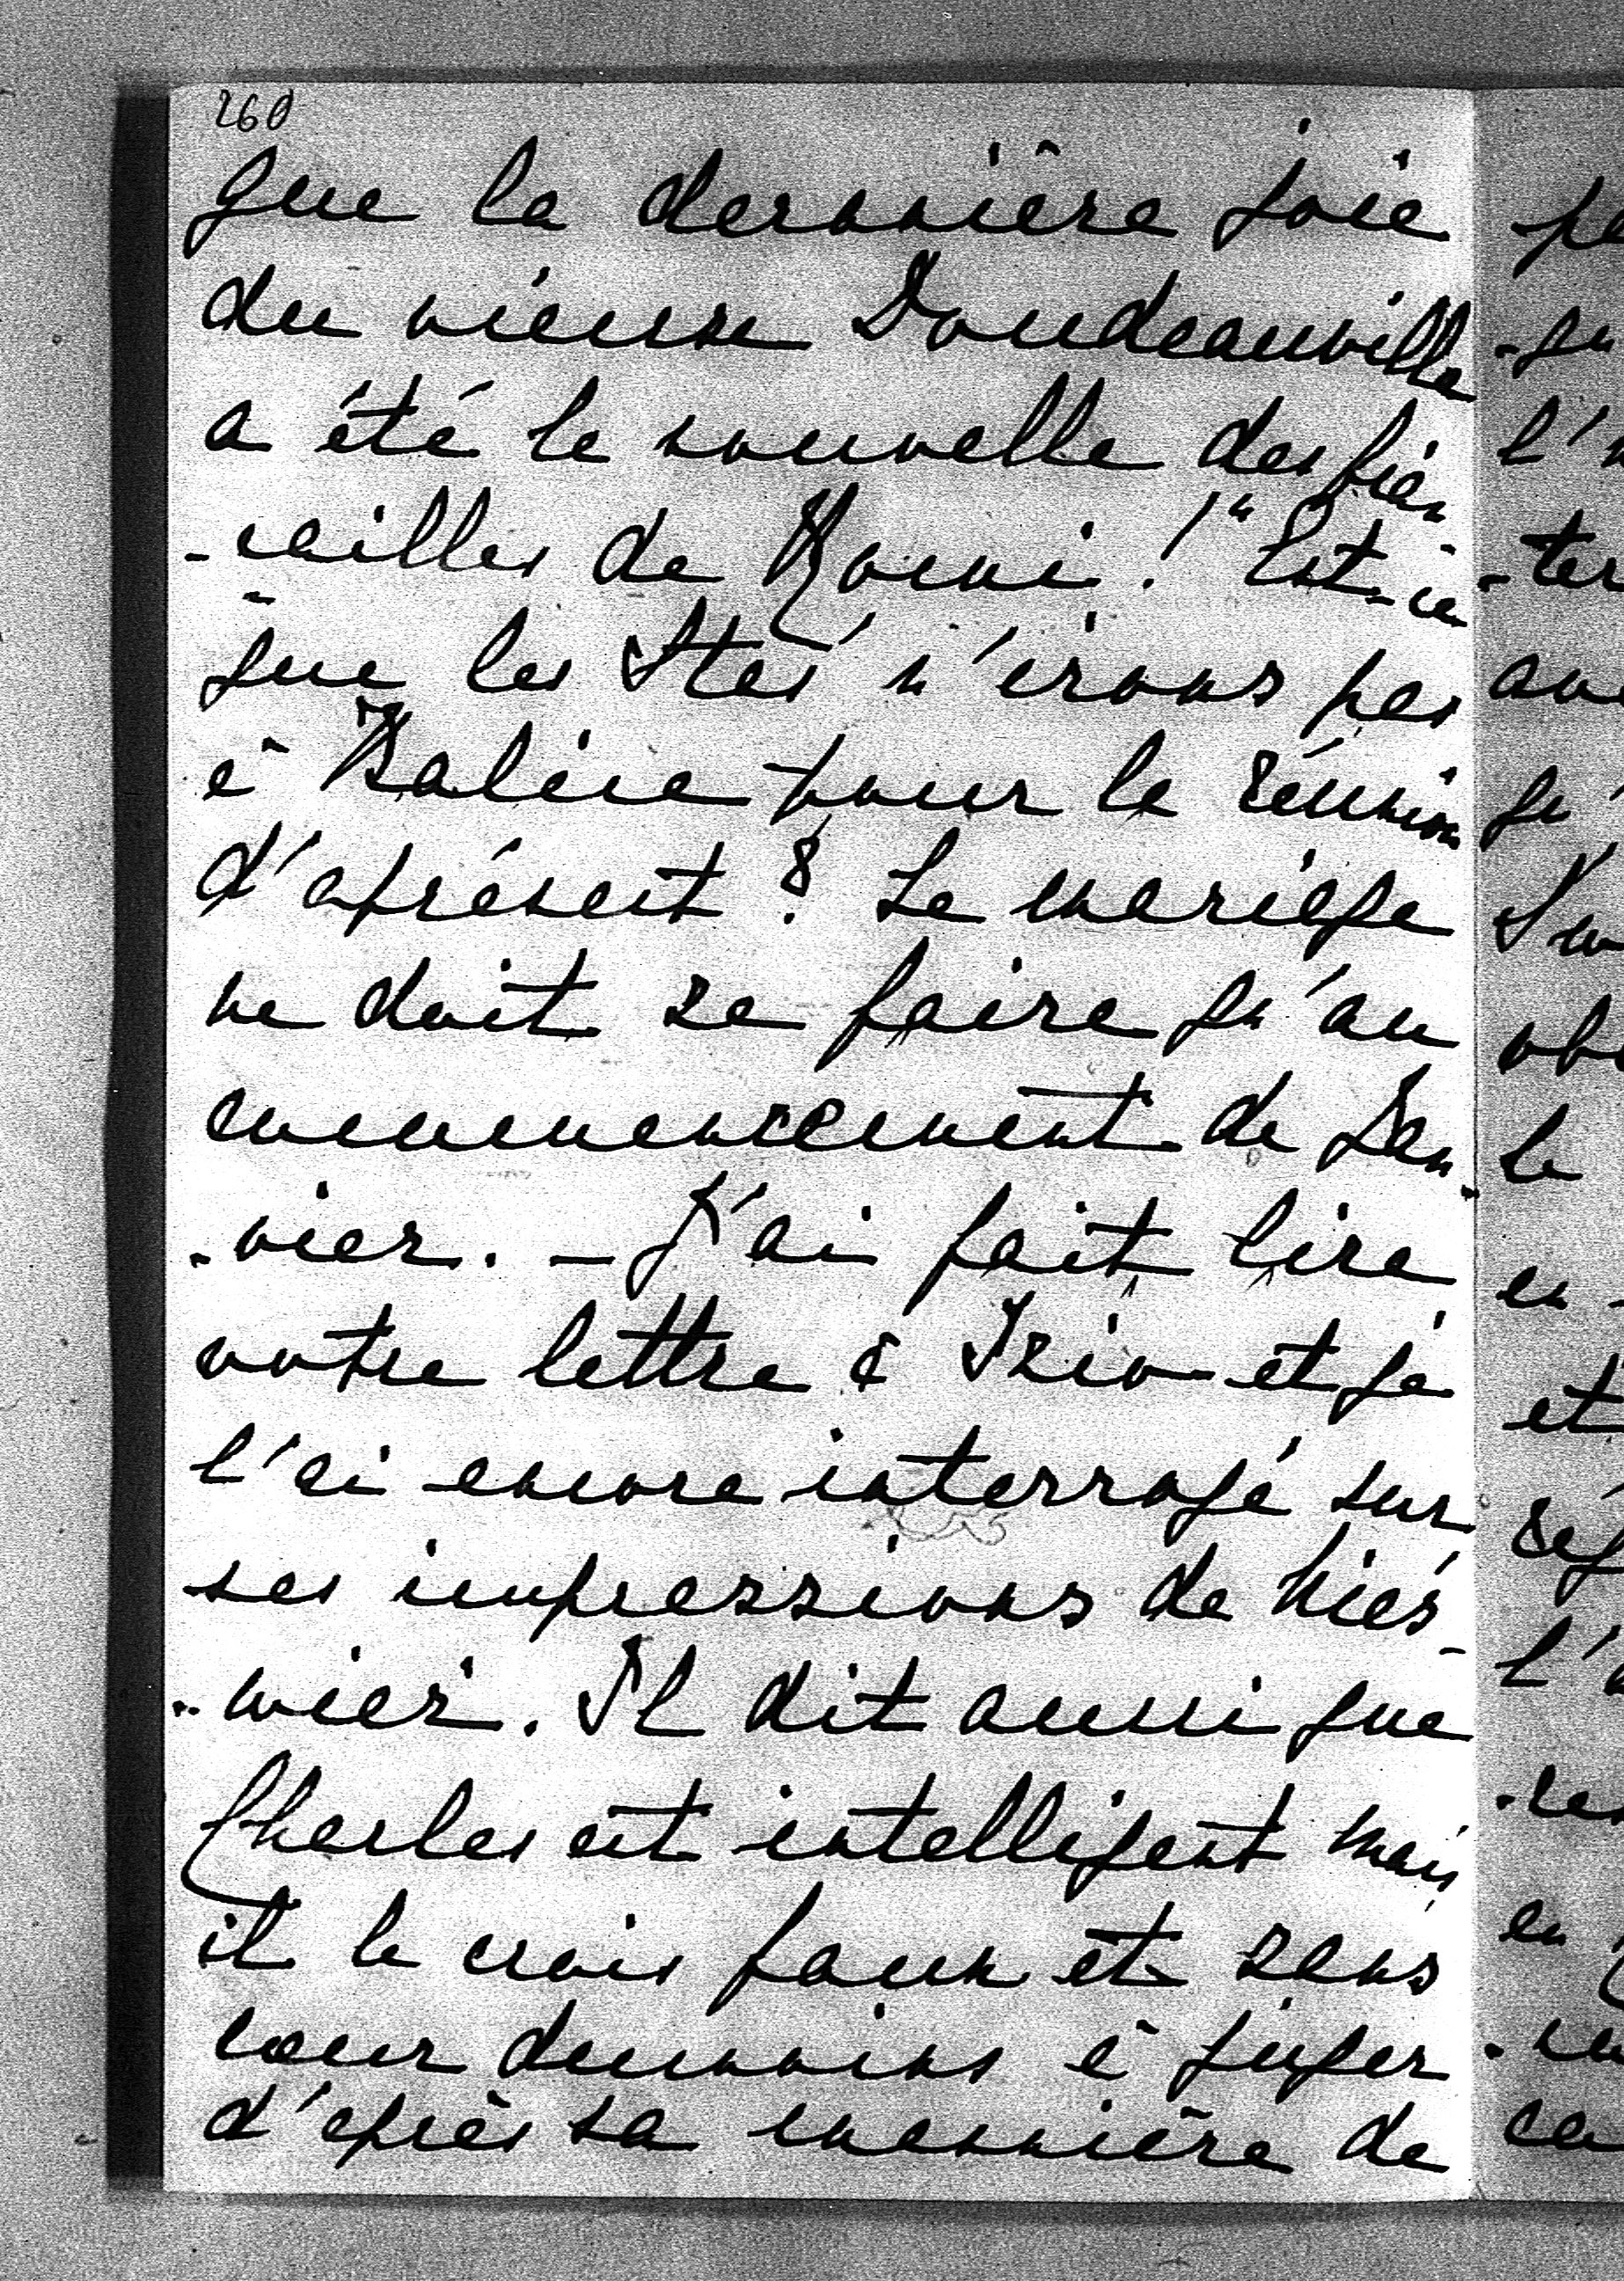 260
que la dernière joie
du vieux Doudeauville
a été la nouvelle des fian
-cailles de Romi!" Est-ce
que les Stes n'irons pas
à Balice pour la réunion
d'aprésent? Le mariage
ne doit se faire qu'au
commencement de Jan-
-vier. - J'ai fait lire
votre lettre à Izio et je
l'ai encore interrogé sur
ses impressions de hier
-wier. Il dit aussi que
Charles est intelligent mais
il le crois faux et sans
cœur dumoins à juger
d'après sa mannière de